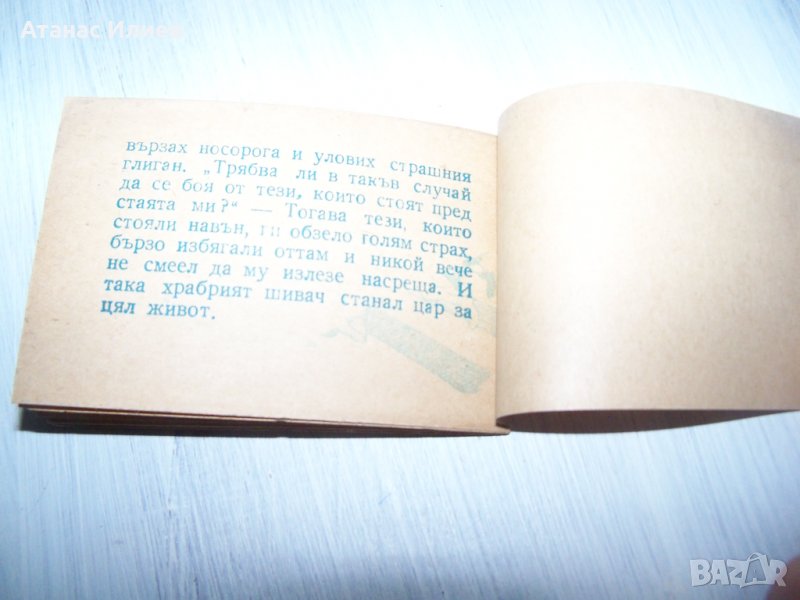 Атанас Илиев
вързах носорога и улових страшния
глиган. „Трябва ли в такъв случай
да се боя от тези, които стоят пред
стаята ми?“ — Тогава тези, които
стояли навън, ги обзело голям страх,
бързо избягали оттам и никой вече
не смеел да му излезе насреща. И
така храбрият шивач станал цар за
цял живот.
BAZAR